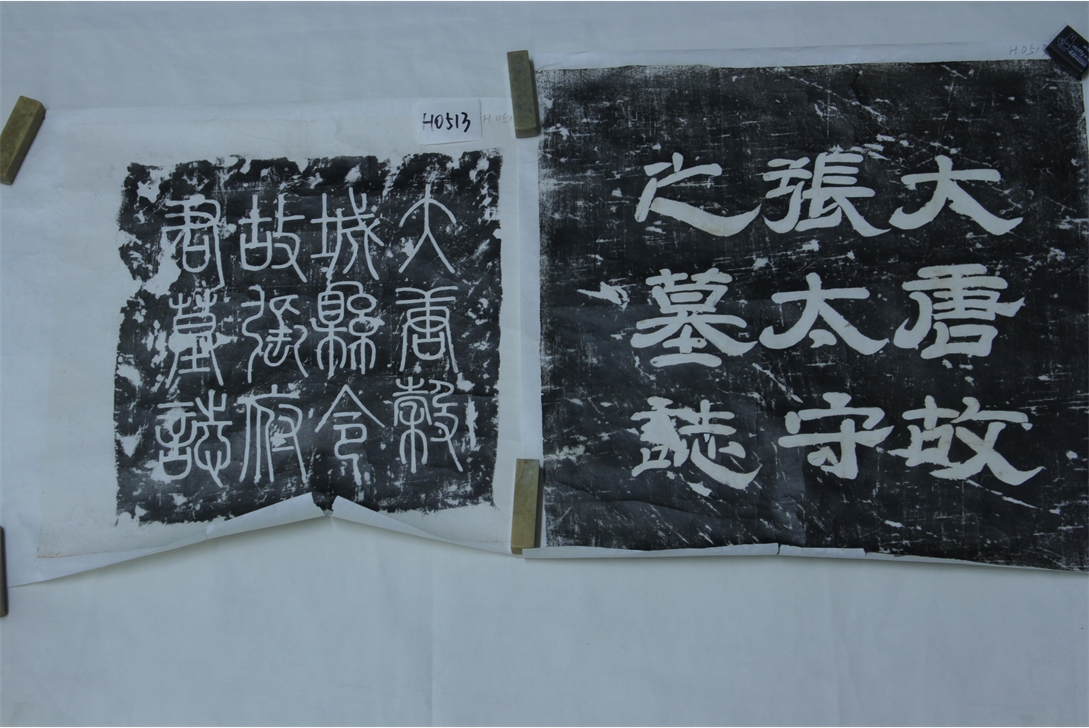 H0513
大唐穀
城縣令
故張府
君墓誌
H.0513
大唐故
張太守
之墓誌